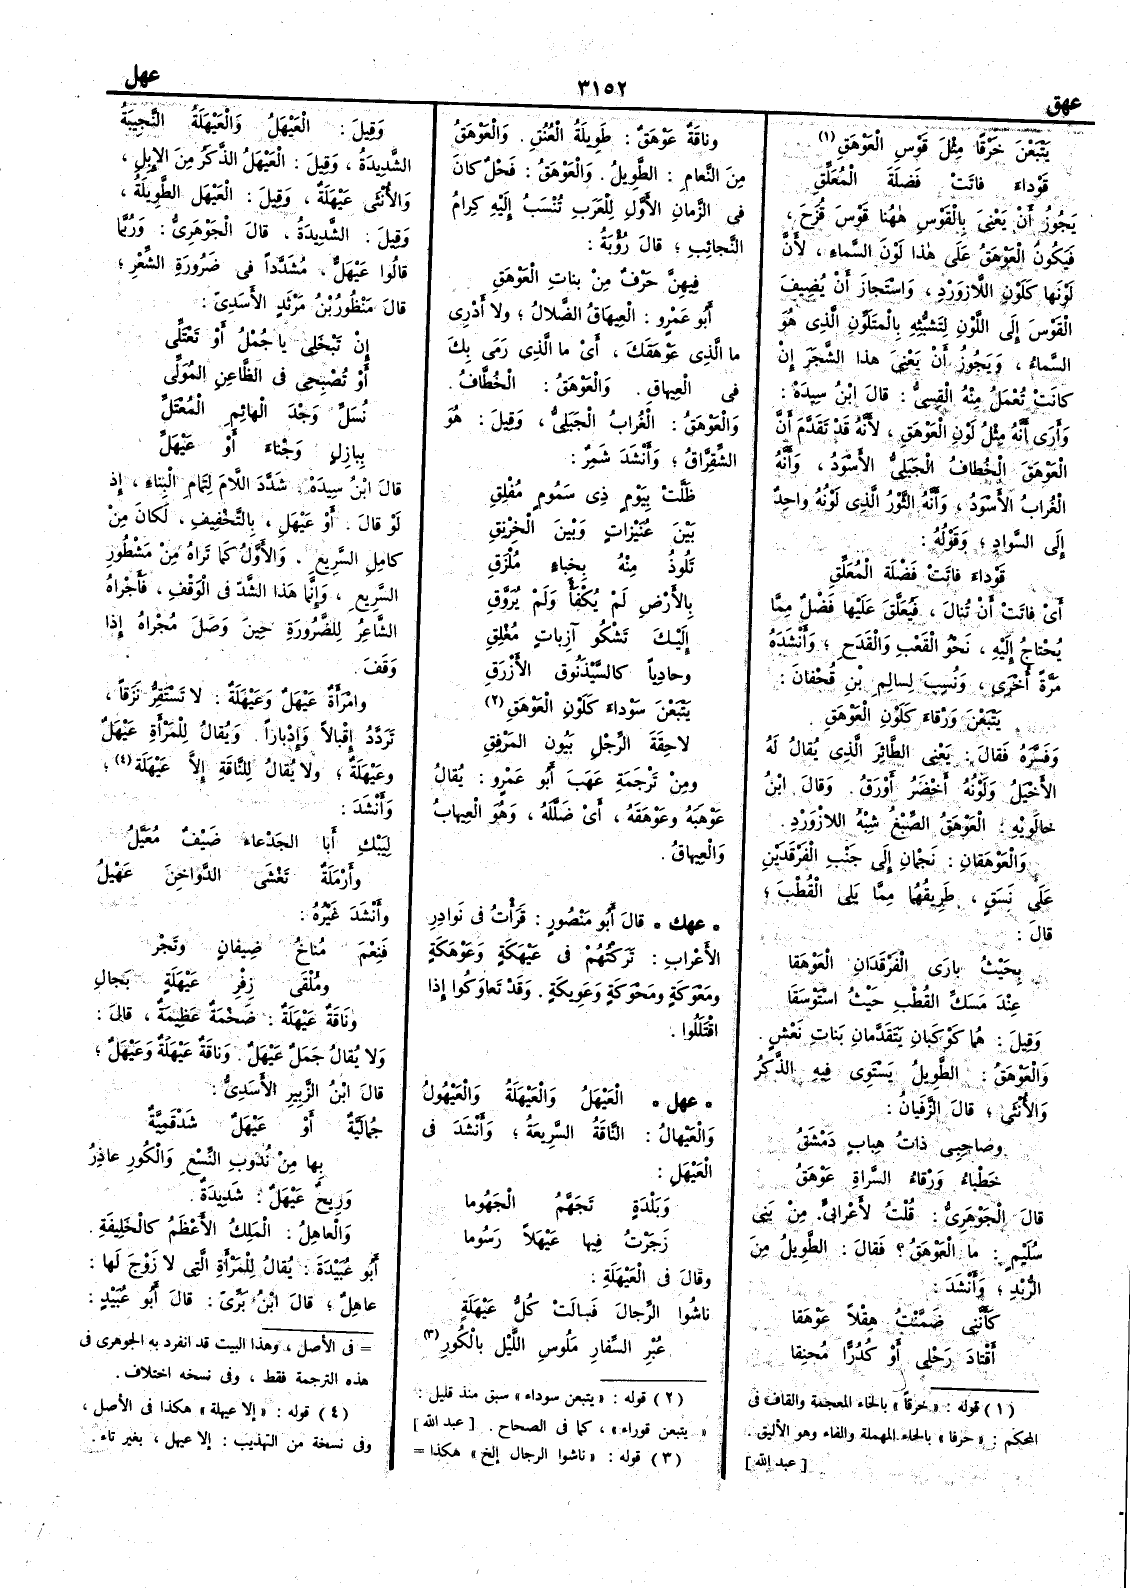 عهق
٣١٥٢
عهل
يَتْبَعْنَ خَرْقًا مِثْلَ قَوْسِ الْعَوْهَقِ (١)
قَوْداءَ فاتَتْ فَضْلَةَ الْمُعَلِّقِ
يَجُوزُ أَنْ يَعْنِىَ بِالْقَوْسِ هٰهُنا قَوْسَ قُزَحَ ،
فَيَكُونُ الْعَوْهَقُ عَلَى هٰذا لَوْنَ السَّماءِ ، لأَنَّ
لَوْنَها كَلَوْنِ اللَّازوَرْدِ ، وَاسْتَجازَ أَنْ يُضِيفَ
الْقَوْسَ إِلَى اللَّوْنِ لِتَشَبُّهِ بِالْمتَلَوِّنِ الَّذِى هُوَ
السَّماءُ ، وَيَجُوزُ أَنْ يَعْنِىَ هذا الشَّجَرَ إِنْ
كانَتْ تُعْمَلُ مِنْهُ الْقِسِىُّ : قالَ ابْنُ سِيدَهْ :
وَأَرَى أَنَّهُ مِثْلُ لَوْنِ الْعَوْهَقِ ، لأَنَّهُ قَدْ تَقَدَّمَ أَنَّ
الْعَوْهَقَ الْخُطافُ الْجَبَلِىُّ الأَسْوَدُ ، وَأَنَّهُ
الْغُرابُ الأَسْوَدُ ، وَأَنَّهُ الثَّوْرُ الَّذِى لَوْنُهُ واحِدٌ
إِلَى السَّوادِ ؛ وَقَوْلُهُ :
قَوْداءَ فاتَتْ فَضْلَةَ الْمُعَلِّقِ
أَىْ فاتَتْ أَنْ تُنالَ ، فَيُعَلَّقَ عَلَيْها فَضْلٌ مِمَّا
يُحْتاجُ إِلَيْهِ ، نَحْوُ الْقَعْبِ وَالْقَدَحِ ؛ وَأَنْشَدَهُ
مَرَّةً أُخْرَى ، وَنُسِبَ لِسالِمِ بْنِ قُحْفانَ :
يَتْبَعْنَ وَرْقاءَ كَلَوْنِ الْعَوْهَقِ .
وَفَسَّرَهُ فَقالَ : يَعْنِى الطَّائِرَ الَّذِى يُقالُ لَهُ
الأَخْيَلُ وَلَوْنُهُ أَخْضَرُ أَوْرَقُ . وَقالَ ابْنُ
خالَوَيْهِ : الْعَوْهَقُ الصِّبْغُ شِبْهُ اللازوَرْدِ .
وَالْعَوْهَقانِ : نَجْمانِ إِلَى جَنْبِ الْفَرْقَدَيْنِ
عَلَى نَسَقٍ ، طَرِيقُهُما مِمَّا يَلِى الْقُطْبَ ؛
قالَ :
بِحَيْثُ بارَى الْفَرْقَدانِ الْعَوْهَقا
عِنْدَ مَسَكِّ الْقُطْبِ حَيْثُ اسْتَوْسَقا
وَقِيلَ : هُما كَوْكَبانِ يَتَقَدَّمانِ بَناتِ نَعْشٍ .
وَالْعَوْهَقُ : الطَّوِيلُ يَسْتَوِى فِيهِ الذَّكَرُ
وَالأُنْثَى ؛ قالَ الزَّفَيانُ :
وصاحِبِى ذاتُ هِبابٍ دَمْشَقُ
خَطْباءُ وَرْقاءُ السَّراةِ عَوْهَقُ
قالَ الْجَوْهَرِىُّ : قُلْتُ لأَعْرابىٍّ مِنْ بَنِى
سُلَيْمٍ : ما الْعَوْهَقُ؟ فَقالَ : الطَّوِيلُ مِنَ
الرُّبْدِ ؛ وَأَنْشَدَ :
كَأَنَّنِى ضَمَّنْتُ هِقْلاً عَوْهَقا
أَقْتادَ رَحْلِى أَوْ كُدُرًّا مُحْنِقا
(١) قوله : «خرقاً» بالخاء المعجمة والقاف فى
المحكم : «حرفا» بالحاء المهملة والفاء وهو الأليق .
[عبد الله]
وناقَةٌ عَوْهَقٌ : طَوِيلَةُ الْعُنُقِ . وَالْعَوْهَقُ
مِنَ النَّعامِ : الطَّوِيلُ . وَالْعَوْهَقُ : فَحْلٌ كانَ
فى الزَّمانِ الأَوَّلِ لِلْعَرَبِ تُنْسَبُ إِلَيْهِ كِرامُ
النَّجائِبِ ؛ قالَ رُؤْبَةُ :
فِيهِنَّ حَرْفٌ مِنْ بَناتِ الْعَوْهَقِ
أَبُو عَمْرٍو : الْعِيهاقُ الضَّلالُ ؛ ولا أَدْرِى
ما الَّذِى عَوْهَقَكَ ، أَىْ ما الَّذِى رَمَى بِكَ
فى الْعِيهاقِ . وَالْعَوْهَقُ : الْخُطَّافُ .
وَالْعَوْهَقُ : الْغُرابُ الْجَبَلِىُّ ، وَقِيلَ : هُوَ
الشِّقِرَّاقُ ؛ وَأَنْشَدَ شَمِرٌ :
ظَلَّتْ بِيَوْمٍ ذِى سَمُومٍ مُفْلِقِ
بَيْنَ عُنَيْزاتٍ وَبَيْنَ الْخِرْنِقِ
تَلُوذُ مِنْهُ بِخِباءٍ مُلْزَقِ
بِالأَرْضِ لَمْ يُكْفَأْ وَلَمْ يُرَوَّقِ
إِلَيْكَ تَشْكُو آزِباتٍ مُغْلِقِ
وحادِياً كالسَّيْذَنُوقِ الأَزْرَقِ
يَتْبَعْنَ سَوْداءَ كَلَوْنِ الْعَوْهَقِ (٢)
لاحِقَةَ الرِّجْلِ بَيُونَ الْمَرْفِقِ
ومِنْ تَرْجَمَةِ عَهَبَ أَبُو عَمْرٍو : يُقالُ
عَوْهَبَهُ وعَوْهَقَهُ ، أَىْ ضَلَّلَهُ ، وَهُوَ الْعِيهابُ
وَالْعِيهاقُ .
• عهك • قالَ أَبُو مَنْصُورٍ : قَرَأْتُ فى نَوادِرِ
الأَعْرابِ : تَرَكْتُهُمْ فى عَيْهَكَةٍ وَعَوْهَكَةٍ
ومَعْوَكَةٍ ومَحْوَكَةٍ وَعَوِيكَةٍ . وَقَدْ تَعاوَكُوا إِذا
اقْتَتَلُوا .
• عهل • الْعَيْهَلُ وَالْعَيْهَلَةُ وَالْعَيْهُولُ
وَالْعَيْهالُ : النَّاقَةُ السَّرِيعَةُ ؛ وَأَنْشَدَ فى
الْعَيْهَلِ :
وَبَلْدَةٍ تَجَهَّمُ الْجَهُوما
زَجَرْتُ فِيها عَيْهَلاً رَسُوما
وقالَ فى الْعَيْهَلَةِ :
ناشُوا الرِّجالَ فَسالَتْ كُلُّ عَيْهَلَةٍ
عُبْرِ السِّفارِ مَلُوسِ اللَّيْلِ بالْكُورِ (٣)
(٢) قوله : «يتبعن سوداء» سبق منذ قليل :
«يتبعن قوراء» ، كما فى الصحاح . [عبد الله]
(٣) قوله : «ناشوا الرجال إلخ» هكذا =
وَقِيلَ : الْعَيْهَلُ وَالْعَيْهَلَةُ النَّجِيبَةُ
الشَّدِيدَةُ ، وَقِيلَ : الْعَيْهَلُ الذَّكَرُ مِنَ الإِبِلِ ،
وَالأُنْثَى عَيْهَلَةٌ ، وَقِيلَ : الْعَيْهَلُ الطَّوِيلَةُ ،
وَقِيلَ : الشَّدِيدَةُ . قالَ الْجَوْهَرِىُّ : وَرُبَّما
قالُوا عَيْهَلٌّ ، مُشَدَّداً فى ضَرُورَةِ الشِّعْرِ ؛
قالَ مَنْظُورُ بْنُ مَرْثَدٍ الأَسَدِىّ :
إِنْ تَبْخَلِى ياجُمْلُ أَوْ تَعْتَلِّى
أَوْ تُصْبِحِى فى الظَّاعِنِ المُوَلِّى
نُسَلِّ وَجْدَ الْهائِمِ الْمُعْتَلِّ
بِبازِلٍ وَجْناءَ أَوْ عَيْهَلِّ
قالَ ابْنُ سِيدَهْ : شَدَّدَ اللَّامَ لِتَمامِ الْبِناءِ ، إِذ
لَوْ قالَ : أَوْ عَيْهَلِ ، بِالتَّخْفِيفِ ، لَكانَ مِنْ
كامِلِ السَّرِيعِ . وَالأَوَّلُ كَما تَراهُ مِنْ مَشْطُورِ
السَّرِيعِ ، وَإِنَّما هَذا الشَّدُّ فى الْوَقْفِ ، فَأَجْراهُ
الشَّاعِرُ لِلضَّرُورَةِ حِينَ وَصَلَ مُجْراهُ إِذا
وَقَفَ .
وامْرَأَةٌ عَيْهَلٌ وَعَيْهَلَةٌ : لا تَسْتَقِرُّ نَزَقاً ،
تَرَدَّدُ إِقْبالاً وَإِدْباراً . وَيُقالُ لِلْمَرْأَةِ عَيْهَلٌ
وعَيْهَلَةٌ ؛ ولا يُقالُ لِلنَّاقَةِ إِلاَّ عَيْهَلَة (٤) ؛
وَأَنْشَدَ :
لِيَبْكِ أَبا الجَدْعاءِ ضَيْفٌ مُعَيَّلُ
وأَرْمَلَةٌ تَغْشَى الدَّواخِنَ عَهْيَلُ
وَأَنْشَدَ غَيْرُهُ :
فَنِعْمَ مُناخُ ضِيفانٍ وتَجْرٍ
ومُلْقَى زِفْرِ عَيْهَلَةٍ بَجالِ
وَناقَةٌ عَيْهَلَةٌ : ضَخْمَةٌ عَظِيمَةٌ ، قالَ :
وَلا يُقالُ جَمَلٌ عَيْهَلٌ . وَناقَةٌ عَيْهَلَةٌ وَعَيْهَلٌ ؛
قالَ ابْنُ الزَّبِيرِ الأَسَدِىُّ :
جُمالِيَّةٌ أَوْ عَيْهَلٌ شَدْقَمِيَّةٌ
بِها مِنْ نُدُوبِ النِّسْعِ وَالْكُورِ عاذِرُ
وَرِيحٌ عَيْهَلٌ : شَدِيدَةٌ .
وَالْعاهِلُ : الْمَلِكُ الأَعْظَمُ كالْخَلِيفَةِ .
أَبُو عُبَيْدَةَ : يُقالُ لِلْمَرْأَةِ الَّتِى لا زَوْجَ لَها :
عاهِلٌ ؛ قالَ ابْنُ بَرِّىّ : قالَ أَبُو عُبَيْدٍ :
= فى الأصل ، وهذا البيت قد انفرد به الجوهرى فى
هذه الترجمة فقط ، وفى نسخه اختلاف .
(٤) قوله : «إلا عيهلة» هكذا فى الأصل ،
وفى نسخة من التهذيب : إلا عيهل ، بغير تاء .